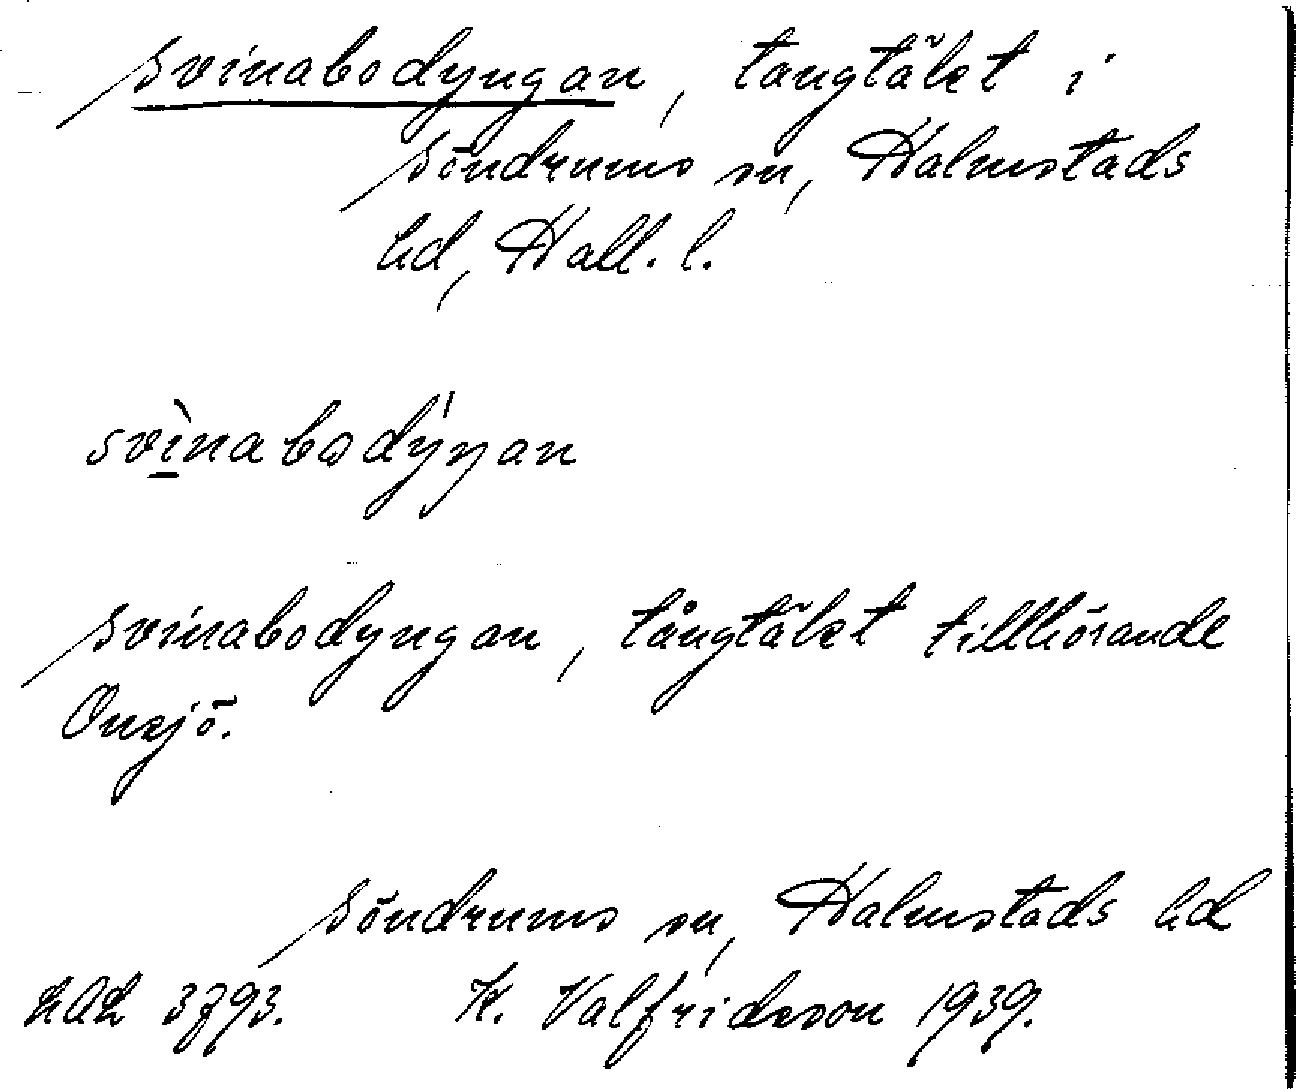 Svinabodyngan, tångtäkt i
Söndrums sn, Halmstads
hd, Hall. l.
svìnabodýŋan
Svinabodyngan, tångtäkt tillhörande
Onsjö.
Söndrums sn, Halmstads hd
3793. K. Valfridsson 1939.